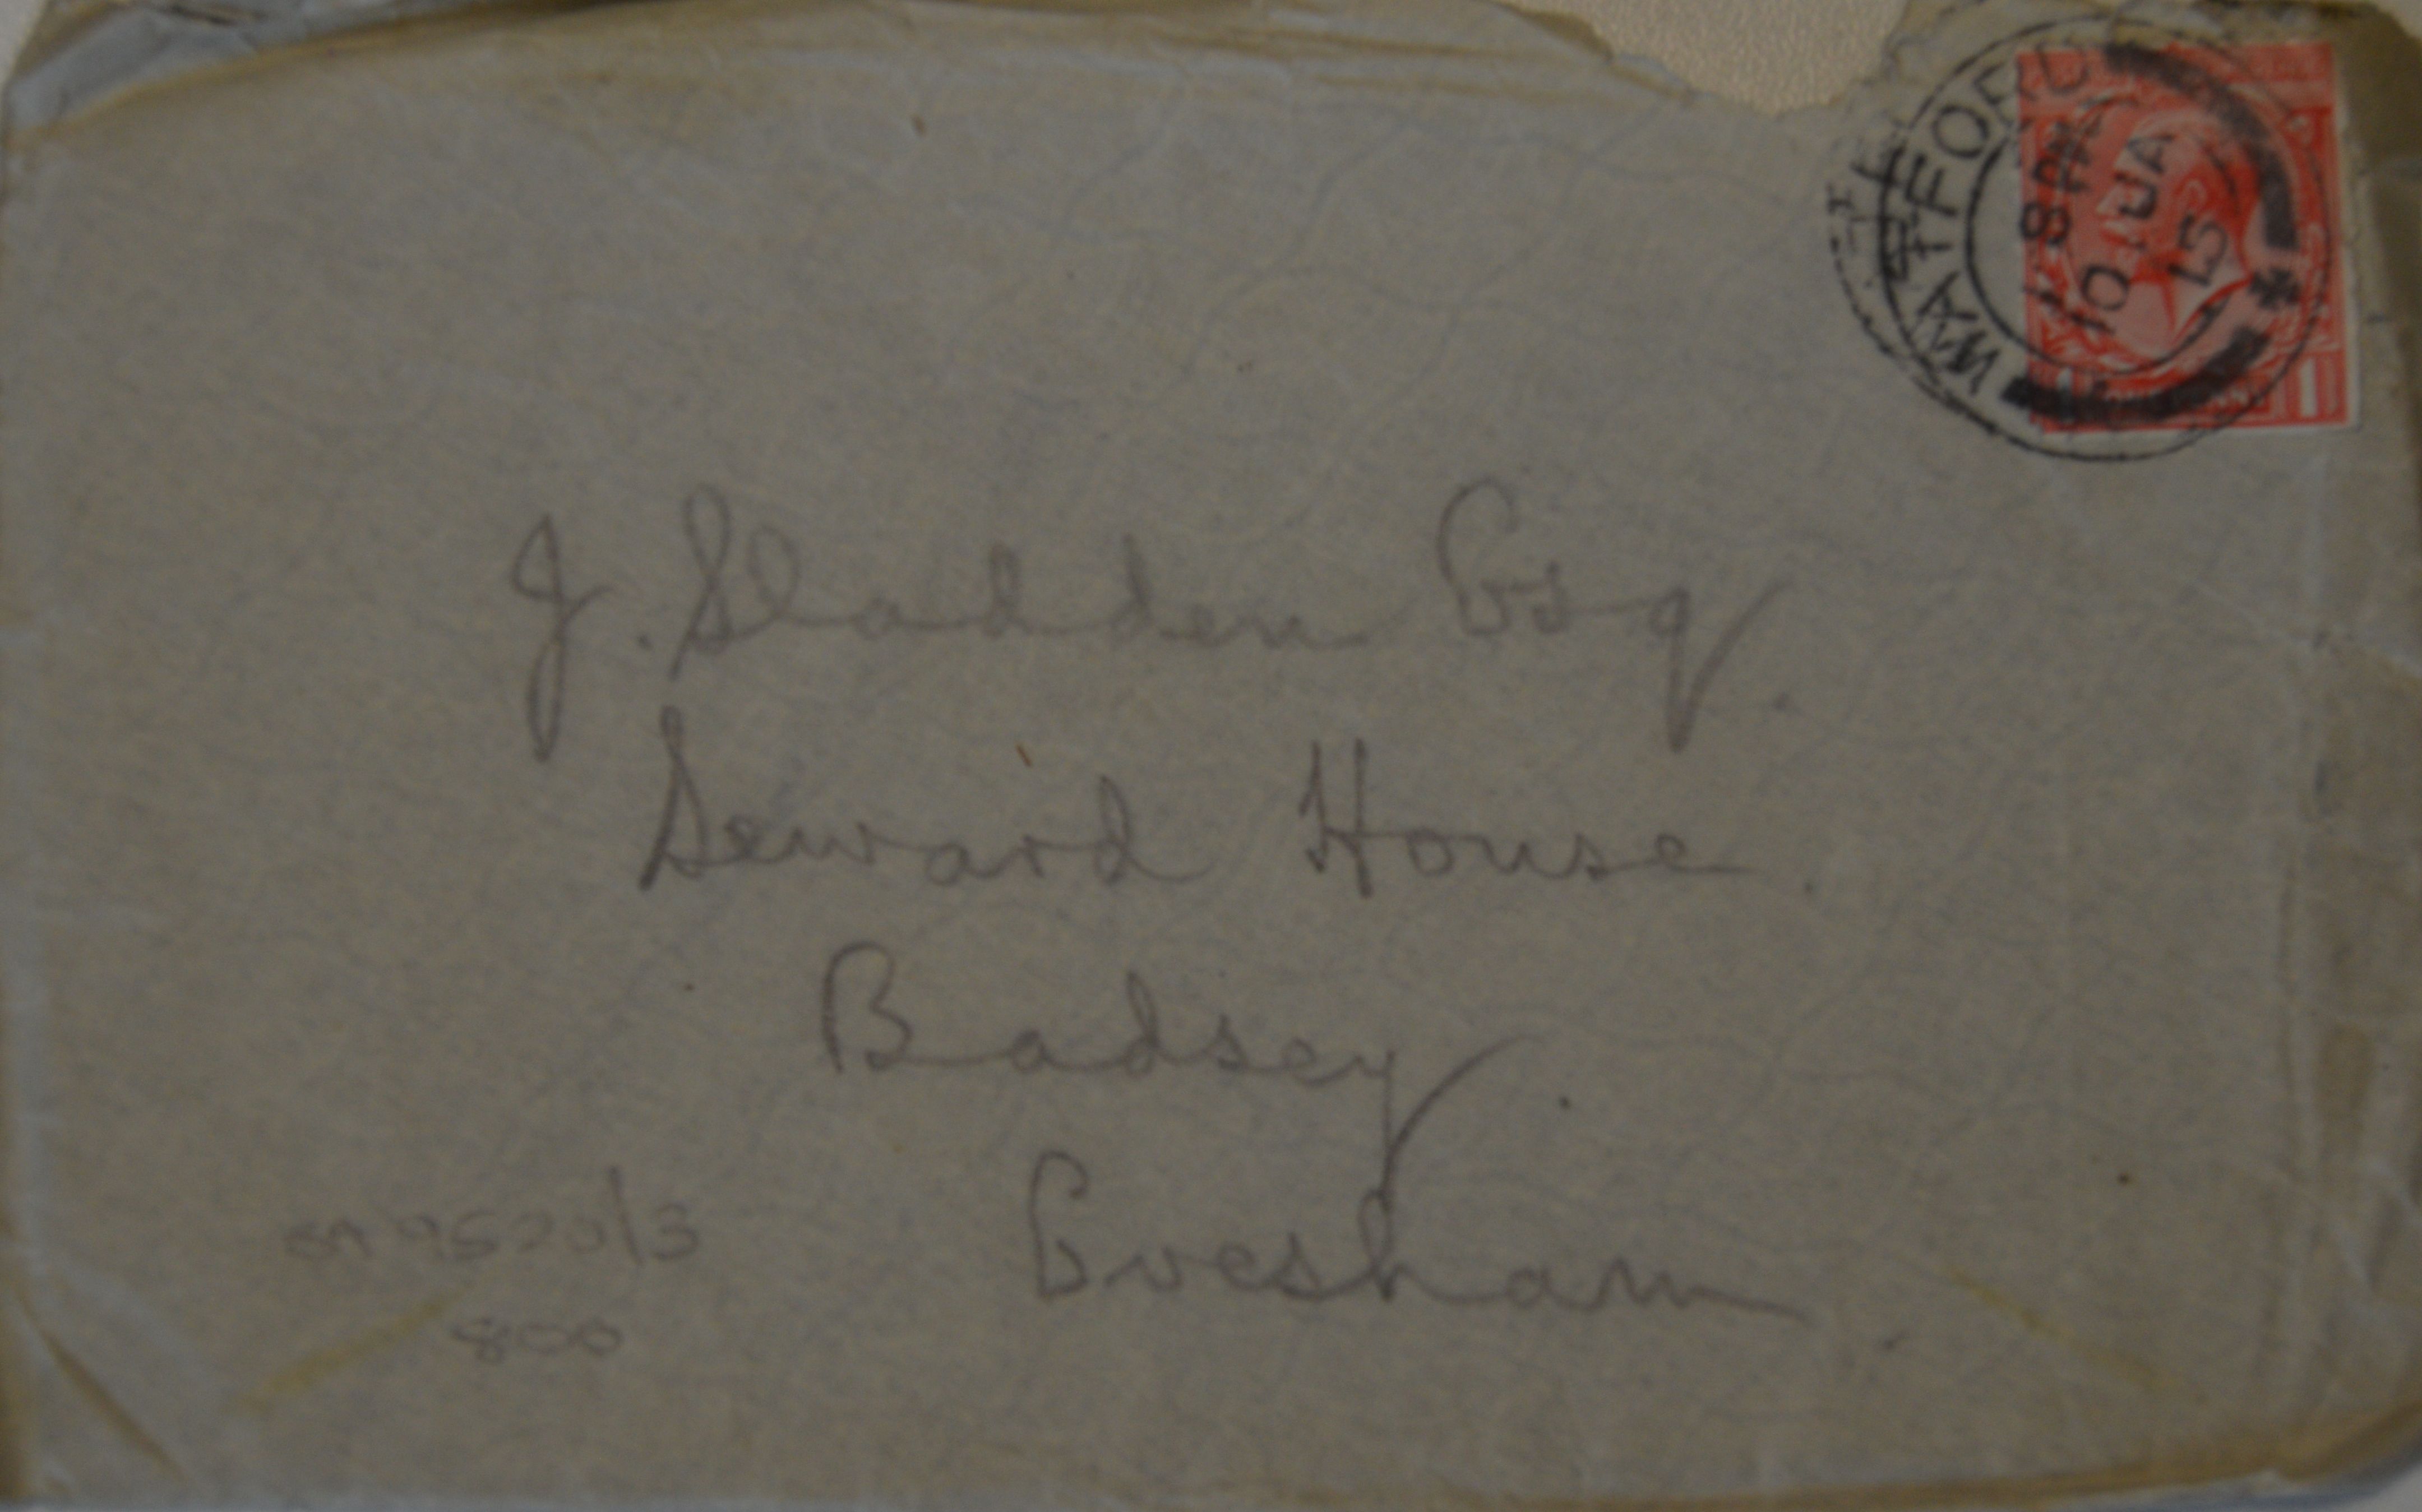 WATFORD
8 PM
10 JA
15
1 1
J. Sladden Esq.
Seward House.
Badsey.
Evesham.
/3
800